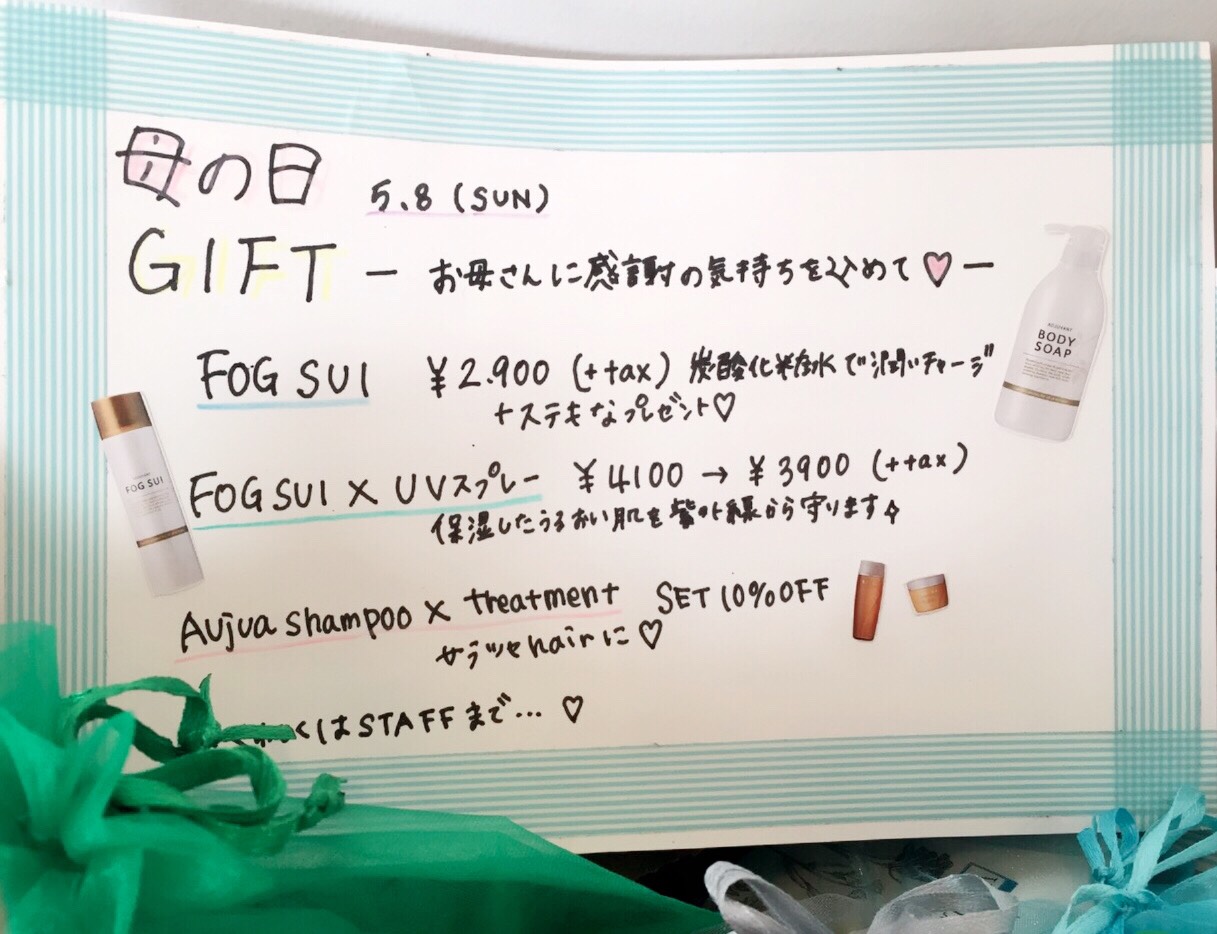 母の日
5.8 (SUN)
GIFT ー お母さんに感謝の気持ちを込めて♡ ー
FOG SUI ¥2.900 (+tax) 炭酸化粧水で潤いチャージ
+ステキなプレゼント♡
FOG SUI × UVスプレー ¥4100 → ¥3900 (+tax)
保湿したうるおい肌を紫外線から守ります
Aujua shampoo × treatment SET 10%OFF
サラツヤhairに♡
くはSTAFFまで...♡
BODY
SOAP
FOG SUI